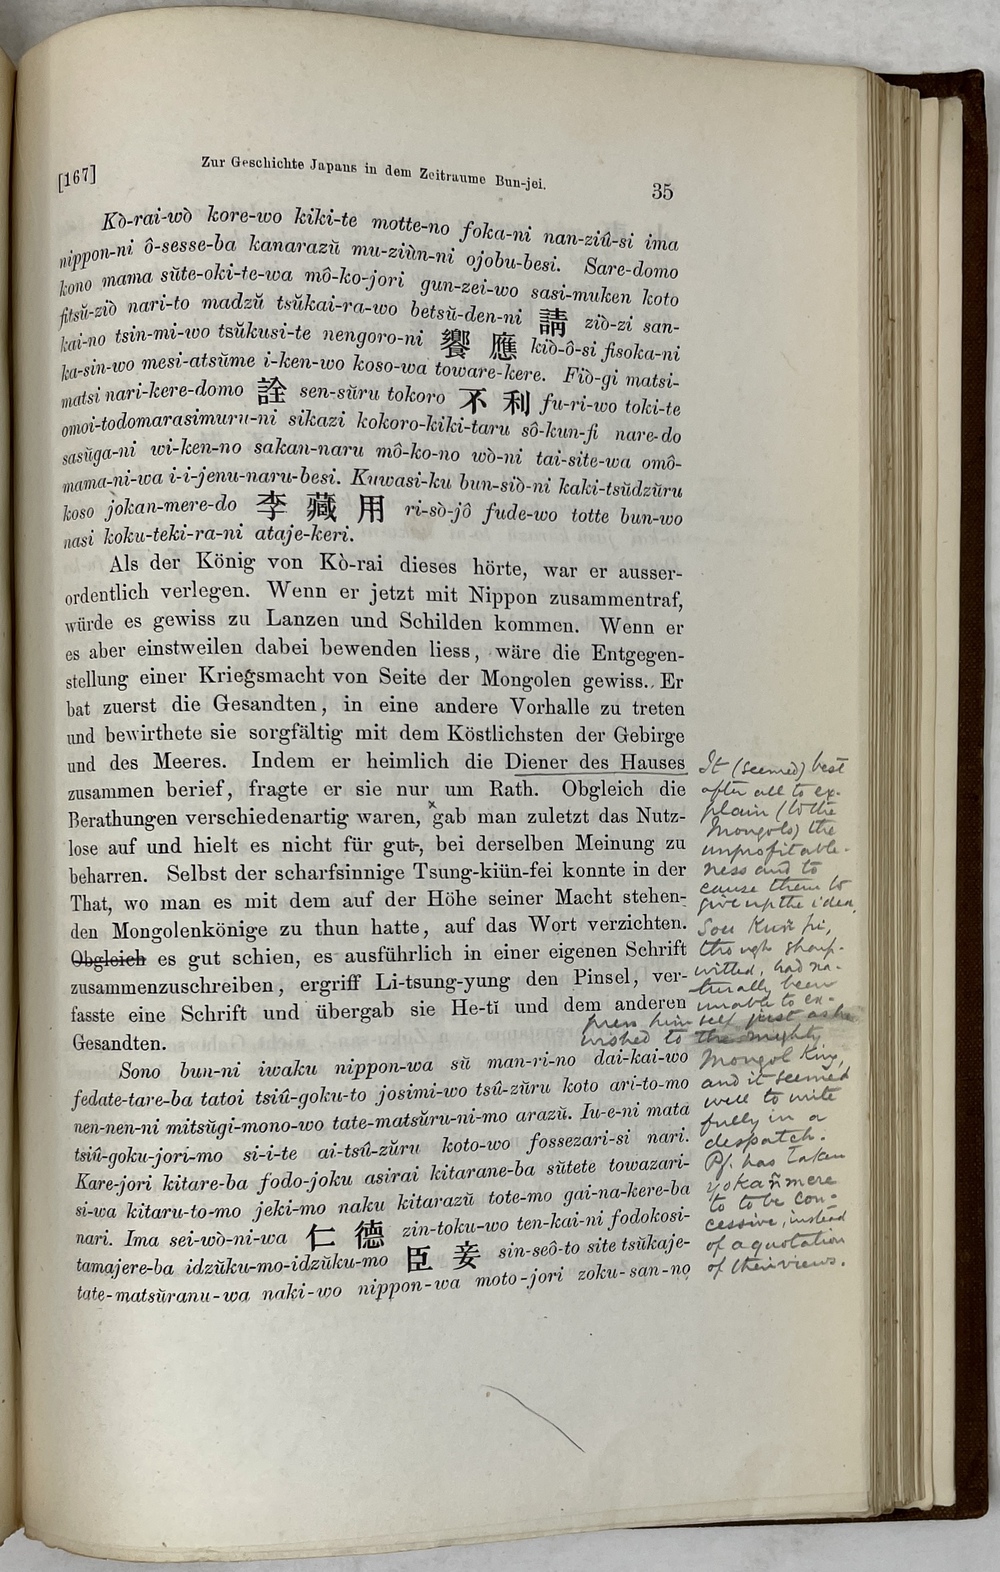 [167] Zur Geschichte Japans in dem Zeitraume Bun-jei. 35
Kò-rai-wò kore-wo kiki-te motte-no foka-ni nan-ziû-si ima
nippon-ni ô-sesse-ba kanarazŭ mu-ziùn-ni ojobu-besi. Sare-domo
kono mama sŭte-oki-te-wa mô-ko-jori gun-zei-wo sasi-muken koto
fitsŭ-ziò nari-to madzŭ tsŭkai-ra-wo betsŭ-den-ni 請 ziò-zi san-
kai-no tsin-mi-wo tsŭkusi-te nengoro-ni 饗應 kiò-ô-si fisoka-ni
ka-sin-wo mesi-atsŭme i-ken-wo koso-wa toware-kere. Fiò-gi matsi-
matsi nari-kere-domo 詮 sen-sŭru tokoro 不利 fu-ri-wo toki-te
omoi-todomarasimuru-ni sikazi kokoro-kiki-taru sô-kun-fi nare-do
sasŭga-ni wi-ken-no sakan-naru mô-ko-no wò-ni tai-site-wa omô-
mama-ni-wa i-i-jenu-naru-besi. Kuwasi-ku bun-siò-ni kaki-tsŭdzŭru
koso jokan-mere-do 李藏用 ri-sò-jô fude-wo totte bun-wo
nasi koku-teki-ra-ni ataje-keri.
Als der König von Kò-rai dieses hörte, war er ausser-
ordentlich verlegen. Wenn er jetzt mit Nippon zusammentraf,
würde es gewiss zu Lanzen und Schilden kommen. Wenn er
es aber einstweilen dabei bewenden liess, wäre die Entgegen-
stellung einer Kriegsmacht von Seite der Mongolen gewiss. Er
bat zuerst die Gesandten, in eine andere Vorhalle zu treten
und bewirthete sie sorgfältig mit dem Köstlichsten der Gebirge
und des Meeres. Indem er heimlich die Diener des Hauses
zusammen berief, fragte er sie nur um Rath. Obgleich die
Berathungen verschiedenartig waren, ˣgab man zuletzt das Nutz-
lose auf und hielt es nicht für gut, bei derselben Meinung zu
beharren. Selbst der scharfsinnige Tsung-kiün-fei konnte in der
That, wo man es mit dem auf der Höhe seiner Macht stehen-
den Mongolenkönige zu thun hatte, auf das Wort verzichten.
Obgleich es gut schien, es ausführlich in einer eigenen Schrift
zusammenzuschreiben, ergriff Li-tsung-yung den Pinsel, ver-
fasste eine Schrift und übergab sie He-tĭ und dem anderen
Gesandten.
Sono bun-ni iwaku nippon-wa sŭ man-ri-no dai-kai-wo
fedate-tare-ba tatoi tsiû-goku-to josimi-wo tsû-zŭru koto ari-to-mo
nen-nen-ni mitsŭgi-mono-wo tate-matsŭru-ni-mo arazŭ. Iu-e-ni mata
tsiû-goku-jori-mo si-i-te ai-tsû-zŭru koto-wo fossezari-si nari.
Kare-jori kitare-ba fodo-joku asirai kitarane-ba sŭtete towazari-
si-wa kitaru-to-mo jeki-mo naku kitarazŭ tote-mo gai-na-kere-ba
nari. Ima sei-wò-ni-wa 仁德 zin-toku-wo ten-kai-ni fodokosi-
tamajere-ba idzŭku-mo-idzŭku-mo 臣妾 sin-seô-to site tsŭkaje-
tate-matsŭranu-wa naki-wo nippon-wa moto-jori zoku-san-no
It (seemed) best
after all to ex-
plain (to the
Mongols) the
unprofitable-
ness and to
cause them to
give up the idea.
Sou Kun fi,
though sharp-
witted, had na-
turally been
unable to ex-
press himself just as he
wished to the mighty
Mongol King,
and it seemed
well to write
fully in a
despatch.
Pf. has taken
yokañmere
to to be con-
cessive, instead
of a quotation
of their views.